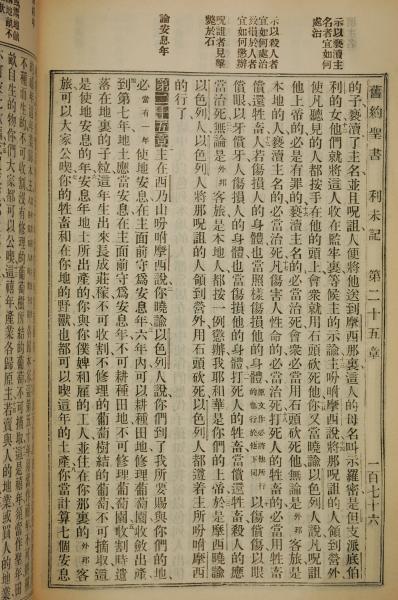 舊約聖書 利未記 第二十五章 一百七十六
示以褻瀆主
名者宜如何
處治
示以殺人者
宜如何處治
致損於人者
宜如何懲辦
咒詛者見擊
斃於石
論安息年
的子褻瀆了主名並且咒詛人便將他送到摩西那裏這人的母名叫示羅密是但支派底伯
利的女他們就將這人收在監牢裏等候主的示諭主吩咐摩西說將那咒詛的人領到營外
使凡聽見的人都按手在他的頭上會衆就用石頭砍死他你又當曉諭以色列人說凡咒詛
他上帝的必是有罪的褻瀆主名的必當治死會衆必當用石頭砍死他無論是外邦客旅是
本地的人褻瀆主名的必當治死凡傷害人性命的必當治死打死人的牲畜的必當用牲畜
償還牲畜人若傷損人的身體也當照樣傷損他的身體原文作必將他所行的也行於他下同以傷償傷以眼
償眼以牙償牙人傷損人的身體也當傷損他的身體打死人的牲畜當償還牲畜殺人的應
當治死無論是外邦客旅是本地人都按一例懲辦我耶和華是你們的上帝於是摩西曉諭
以色列人以色列人將那咒詛的人領到營外用石頭砍死以色列人都遵着主所吩咐摩西
的行了
第二十五章主在西乃山吩咐摩西說你曉諭以色列人說你們到了我所要賜與你們的地
必當有一年使地安息在主面前守爲安息年六年內可以耕種田地修理葡萄園收斂出產
到第七年地土應當安息在主面前守爲安息年不可耕種田地不可修理葡萄園收割時遺
落在地裏的子粒這年生出來長成莊稼不可收割不修理的葡萄樹結的葡萄不可摘取這
是使地安息的年安息年地土所出產的你與你僕婢和雇的工人並住在你那裏的外邦客
旅可以大家公喫你的牲畜和在你地的野獸也都可以喫這年的土產你當計算七個安息